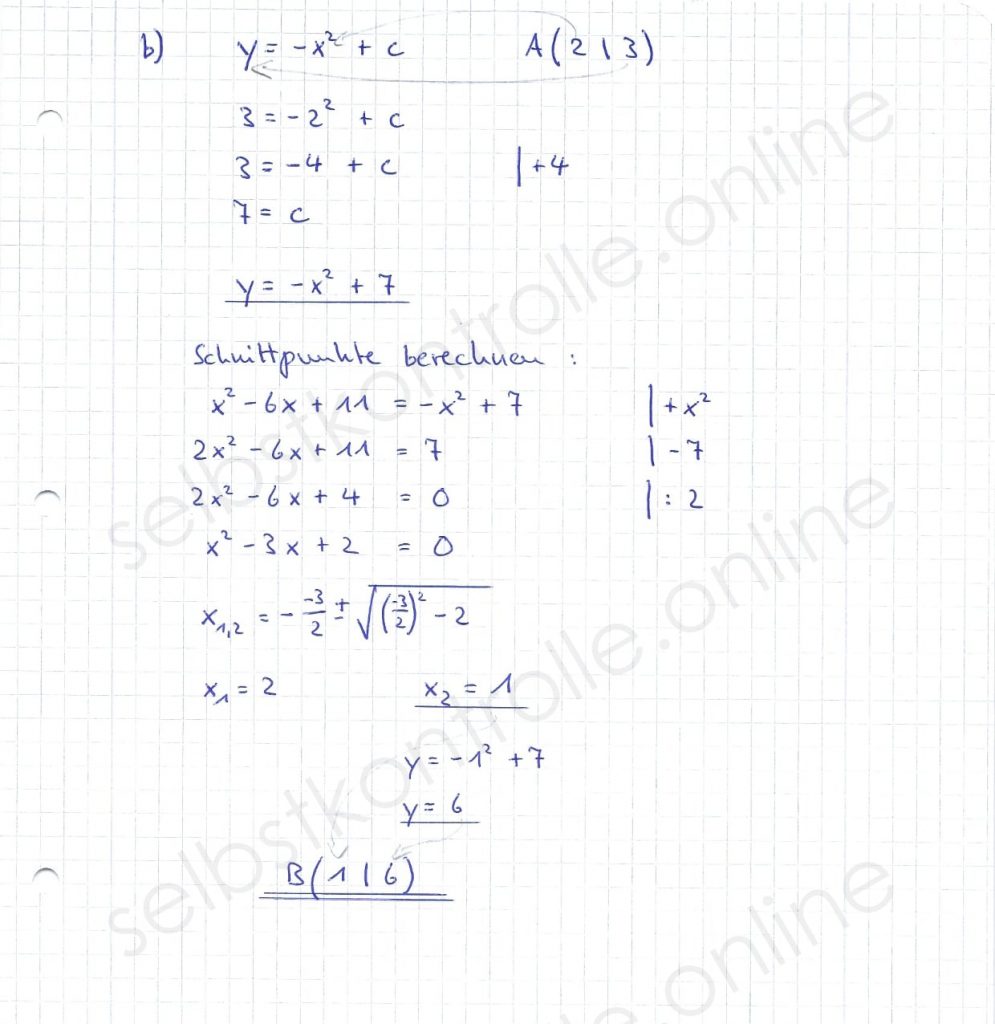 b) y = -x² + c A(2|3)
3 = -2² + c
3 = -4 + c |+4
7 = c
y = -x² + 7
Schnittpunkte berechnen :
x² - 6x + 11 = -x² + 7 |+x²
2x² - 6x + 11 = 7 |-7
2x² - 6x + 4 = 0 |: 2
x² - 3x + 2 = 0
x₁,₂ = - -3/2 ± √((-3/2)² - 2)
x₁ = 2 x₂ = 1
y = -1² + 7
y = 6
B(1|6)
selbstkontrolle.online
selbstkontrolle.online
selbstkontrolle.online